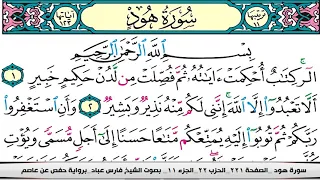 سُورَةُ هُودٍ
بِسْمِ ٱللَّهِ ٱلرَّحْمَٰنِ ٱلرَّحِيمِ
الٓر كِتَٰبٌ أُحْكِمَتْ ءَايَٰتُهُۥ ثُمَّ فُصِّلَتْ مِن لَّدُنْ حَكِيمٍ خَبِيرٍ ١
أَلَّا تَعْبُدُوٓا۟ إِلَّا ٱللَّهَ إِنَّنِى لَكُم مِّنْهُ نَذِيرٌ وَبَشِيرٌ ٢ وَأَنِ ٱسْتَغْفِرُوا۟
رَبَّكُمْ ثُمَّ تُوبُوٓا۟ إِلَيْهِ يُمَتِّعْكُم مَّتَٰعًا حَسَنًا إِلَىٰٓ أَجَلٍ مُّسَمًّى وَيُؤْتِ
سورة هود _ الصفحة ٢٢١_ الحزب ٢٢ _ الجزء ١١ _ بصوت الشيخ فارس عباد_ برواية حفص عن عاصم